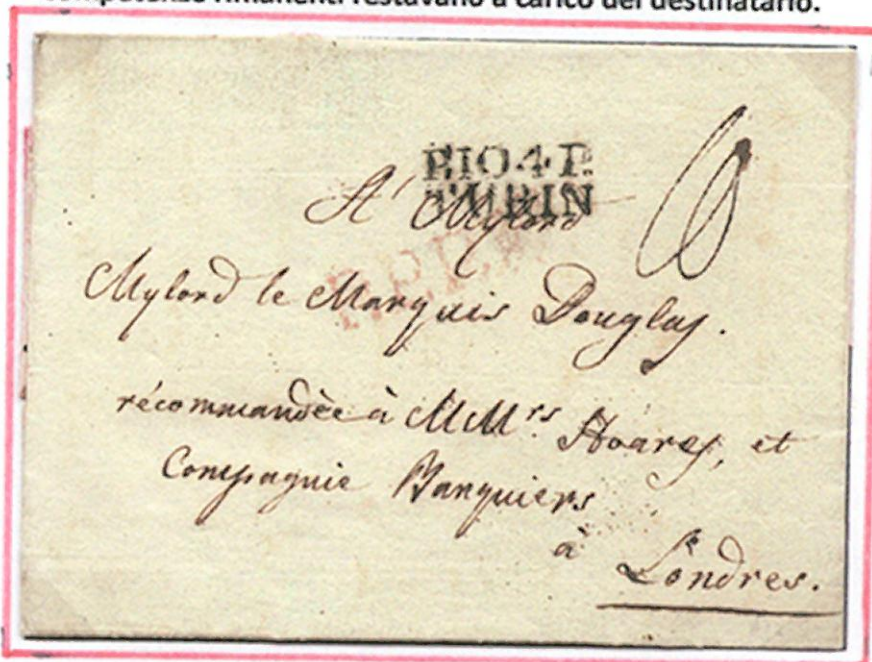 rimanenti restavano a carico del destinatario.
P.104.P.
TURIN
A' Mylord
Mylord le Marquis Douglas.
récommandèe à MMrs. Hoares, et
Compagnie Banquiers
à
Londres.